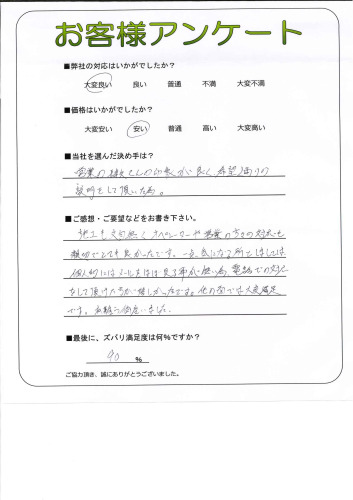 お客様アンケート
■弊社の対応はいかがでしたか？
大変良い 良い 普通 不満 大変不満
■価格はいかがでしたか？
大変安い 安い 普通 高い 大変高い
■当社を選んだ決め手は？
営業の さんの印象が良く、希望通りの
説明をして頂いた為。
■ご感想・ご要望などをお書き下さい。
施工も文句無く、オペレーターや営業の方々の対応も
親切でとても良かったです。一点、気になる所としましては
個人的には は見る事が無い為、電話での対応
をして頂けた方が嬉しかったです。他の面では大変満足
です。お世話になりました。
■最後に、ズバリ満足度は何%ですか？
90 %
ご協力頂き、誠にありがとうございました。